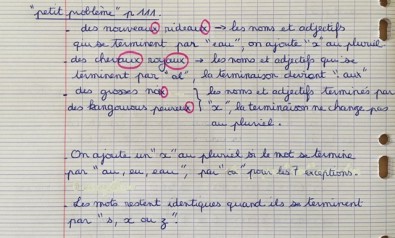 "petit problème" p 111.
- des nouveaux rideaux → les noms et adjectifs
qui se terminent par "eau", on ajoute "x" au pluriel
- des chevaux royaux → les noms et adjectifs qui se
terminent par "al", la terminaison devient "aux"
- des grosses noix } les noms et adjectifs terminés par
des kangourous peureux "x", la terminaison ne change pas
au pluriel.
- On ajoute un "x" au pluriel si le mot se termine
par "au, eu, eau", "ou" pour les 7 exceptions.
- Les mots restent identiques quand ils se terminent
par "s, x ou z".